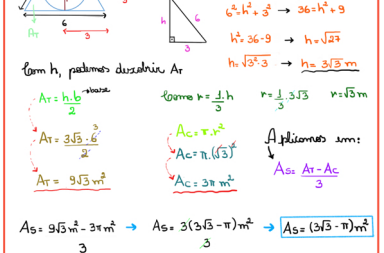 A_T
3
6
h
6
3
6² = h² + 3² → 36 = h² + 9
h² = 36 - 9 → h = √27
h = √3²·3 → h = 3√3 m
Com h, podemos descobrir A_T
A_T = h·b/2 → base
A_T = 3√3·6/2 3
A_T = 9√3 m²
Como r = 1/3·h r = 1/3·3√3 r = √3 m
A_C = π·r²
A_C = π·(√3)²
A_C = 3π m²
Aplicamos em:
A_S = A_T - A_C/3
A_S = 9√3 m² - 3π m²/3 → A_S = 3(3√3 - π) m²/3 → A_S = (3√3 - π) m²